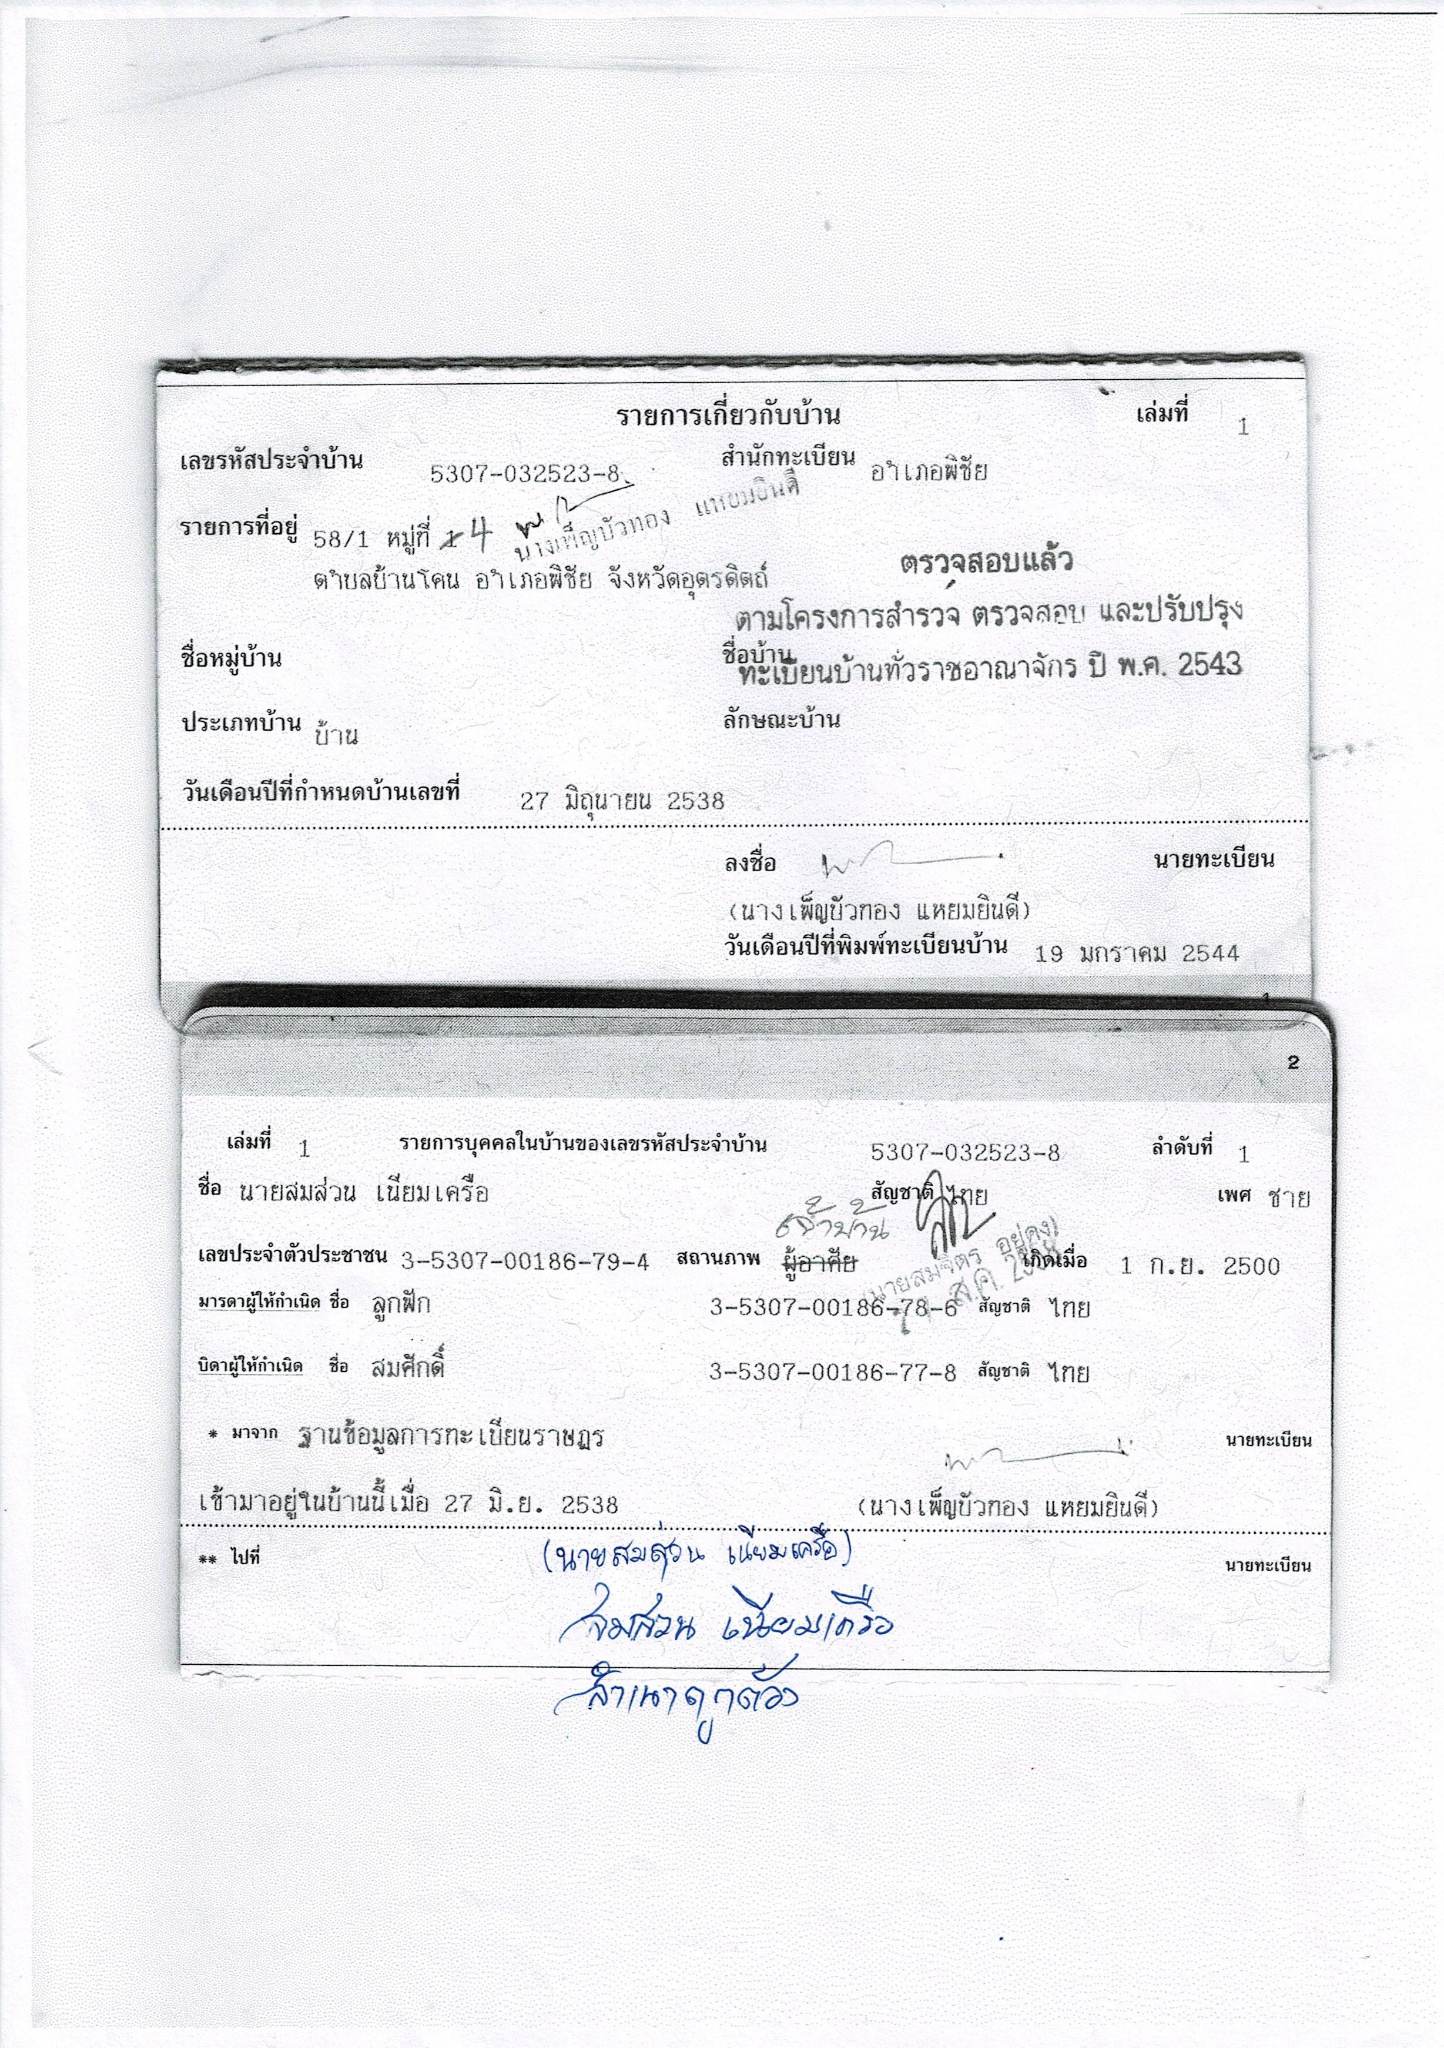 รายการเกี่ยวกับบ้าน เล่มที่ 1
เลขรหัสประจำบ้าน 5307-032523-8 สำนักทะเบียน อำเภอพิชัย
รายการที่อยู่ 58/1 หมู่ที่ 4 นางเพ็ญบัวทอง แหยมยินดี
ตำบลบ้านโคน อำเภอพิชัย จังหวัดอุตรดิตถ์
ตรวจสอบแล้ว
ตามโครงการสำรวจ ตรวจสอบ และปรับปรุง
ทะเบียนบ้านทั่วราชอาณาจักร ปี พ.ศ. 2543
ชื่อหมู่บ้าน ชื่อบ้าน
ประเภทบ้าน บ้าน ลักษณะบ้าน
วันเดือนปีที่กำหนดบ้านเลขที่ 27 มิถุนายน 2538
ลงชื่อ นายทะเบียน
(นางเพ็ญบัวทอง แหยมยินดี)
วันเดือนปีที่พิมพ์ทะเบียนบ้าน 19 มกราคม 2544
1
2
เล่มที่ 1 รายการบุคคลในบ้านของเลขรหัสประจำบ้าน 5307-032523-8 ลำดับที่ 1
ชื่อ นายสมส่วน เนียมเครือ สัญชาติ ไทย เพศ ชาย
เจ้าบ้าน
เลขประจำตัวประชาชน 3-5307-00186-79-4 สถานภาพ ผู้อาศัย เกิดเมื่อ 1 ก.ย. 2500
มารดาผู้ให้กำเนิด ชื่อ ลูกฟัก 3-5307-00186-78-6 สัญชาติ ไทย
บิดาผู้ให้กำเนิด ชื่อ สมศักดิ์ 3-5307-00186-77-8 สัญชาติ ไทย
* มาจาก ฐานข้อมูลการทะเบียนราษฎร นายทะเบียน
เข้ามาอยู่ในบ้านนี้เมื่อ 27 มิ.ย. 2538 (นางเพ็ญบัวทอง แหยมยินดี)
** ไปที่ (นายสมส่วน เนียมเครือ) นายทะเบียน
สมส่วน เนียมเครือ
สำเนาถูกต้อง